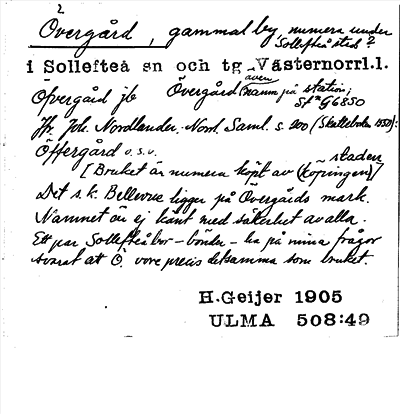 2
Övergård, gammal by, numera under
Sollefteå stad?
i Sollefteå sn och tg Västernorrl.l.
även
Öfvergård jb Övergård namn på station;
Sf G6850
Jfr. Joh. Nordlander. Norrl. Saml. s. 200 (Skatteboken 1550):
Öffergård o.s.v. staden
[Bruket är numera köpt av (köpingen)/
Det s.k. Bellevue ligger på Övergårds mark.
Namnet är ej känt med säkerhet av alla.
Ett par Sollefteåbor – bönder – ha på mina frågor
svarat att Ö. vore precis detsamma som bruket.
H.Geijer 1905
ULMA 508:49